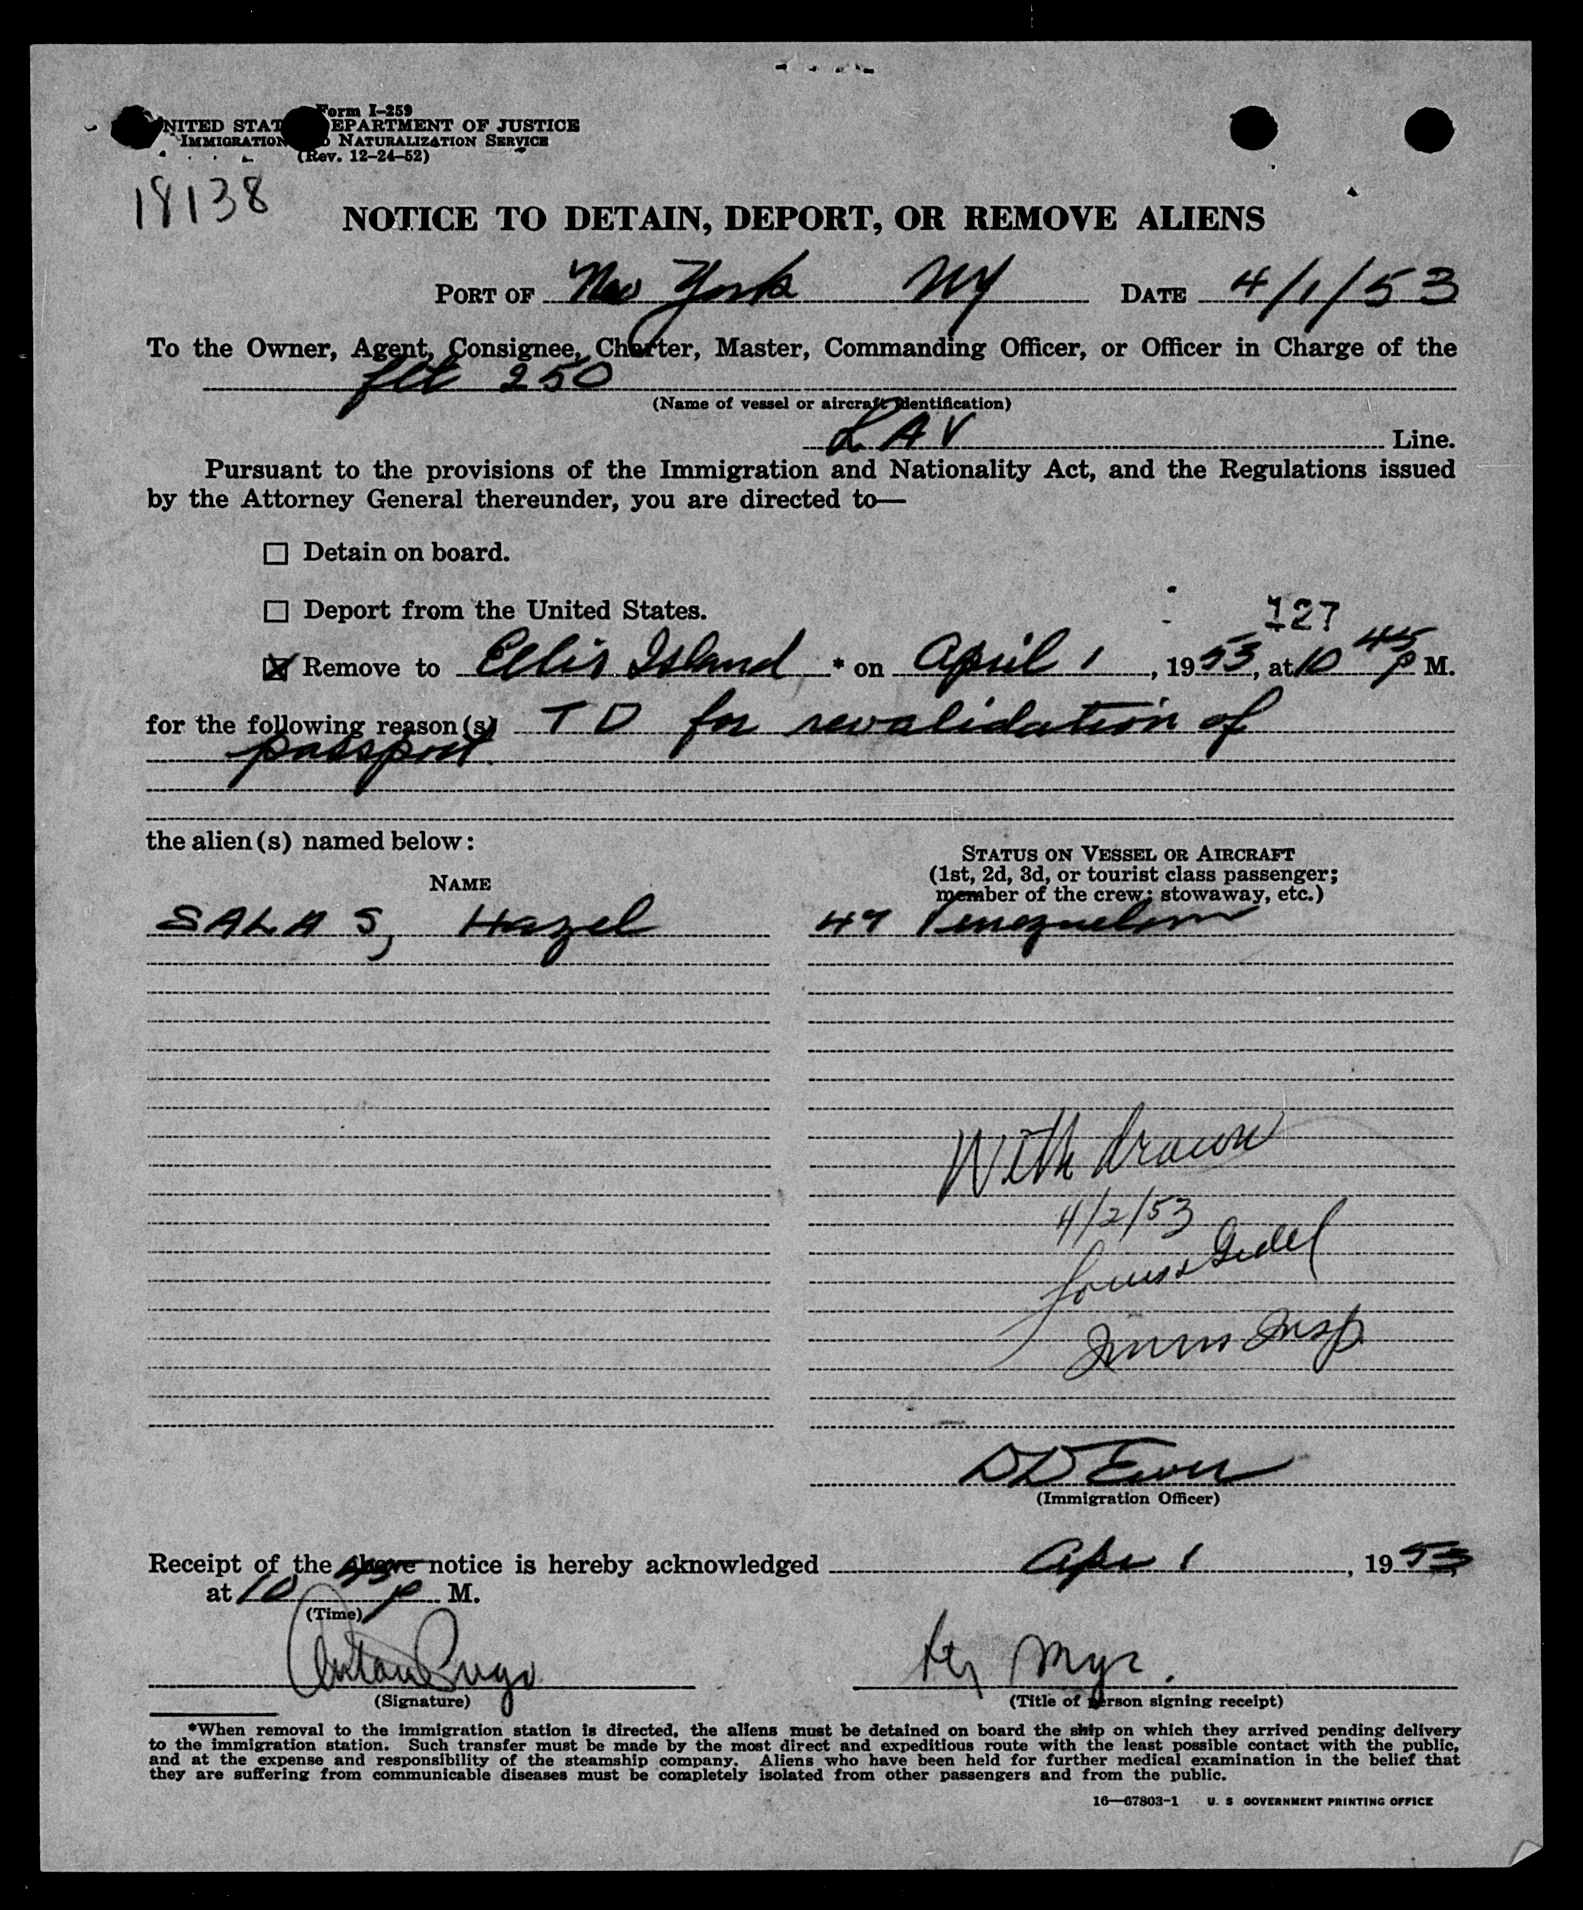 Form I-259
UNITED STATES DEPARTMENT OF JUSTICE
IMMIGRATION AND NATURALIZATION SERVICE
(Rev. 12-24-52)
18138
NOTICE TO DETAIN, DEPORT, OR REMOVE ALIENS
PORT OF New York NY DATE 4/1/53
To the Owner, Agent, Consignee, Charter, Master, Commanding Officer, or Officer in Charge of the
flt 250
(Name of vessel or aircraft identification)
LAV Line.
Pursuant to the provisions of the Immigration and Nationality Act, and the Regulations issued
by the Attorney General thereunder, you are directed to—
Detain on board.
Deport from the United States.
127
Remove to Ellis Island * on April 1, 1953, at 10 45 P M.
for the following reason(s) TD for revalidation of
passport.
the alien(s) named below:
NAME
STATUS ON VESSEL OR AIRCRAFT
(1st, 2d, 3d, or tourist class passenger;
member of the crew; stowaway, etc.)
SALAS, Hazel 47 Venezuelan
Withdrawn
4/2/53
Louis Gidel
Imm Insp.
DD
(Immigration Officer)
Receipt of the above notice is hereby acknowledged Apr 1, 1953,
at 10 45 P M.
(Time)
(Signature)
Mgr.
(Title of person signing receipt)
*When removal to the immigration station is directed, the aliens must be detained on board the ship on which they arrived pending delivery
to the immigration station. Such transfer must be made by the most direct and expeditious route with the least possible contact with the public,
and at the expense and responsibility of the steamship company. Aliens who have been held for further medical examination in the belief that
they are suffering from communicable diseases must be completely isolated from other passengers and from the public.
16—67803-1 U. S GOVERNMENT PRINTING OFFICE